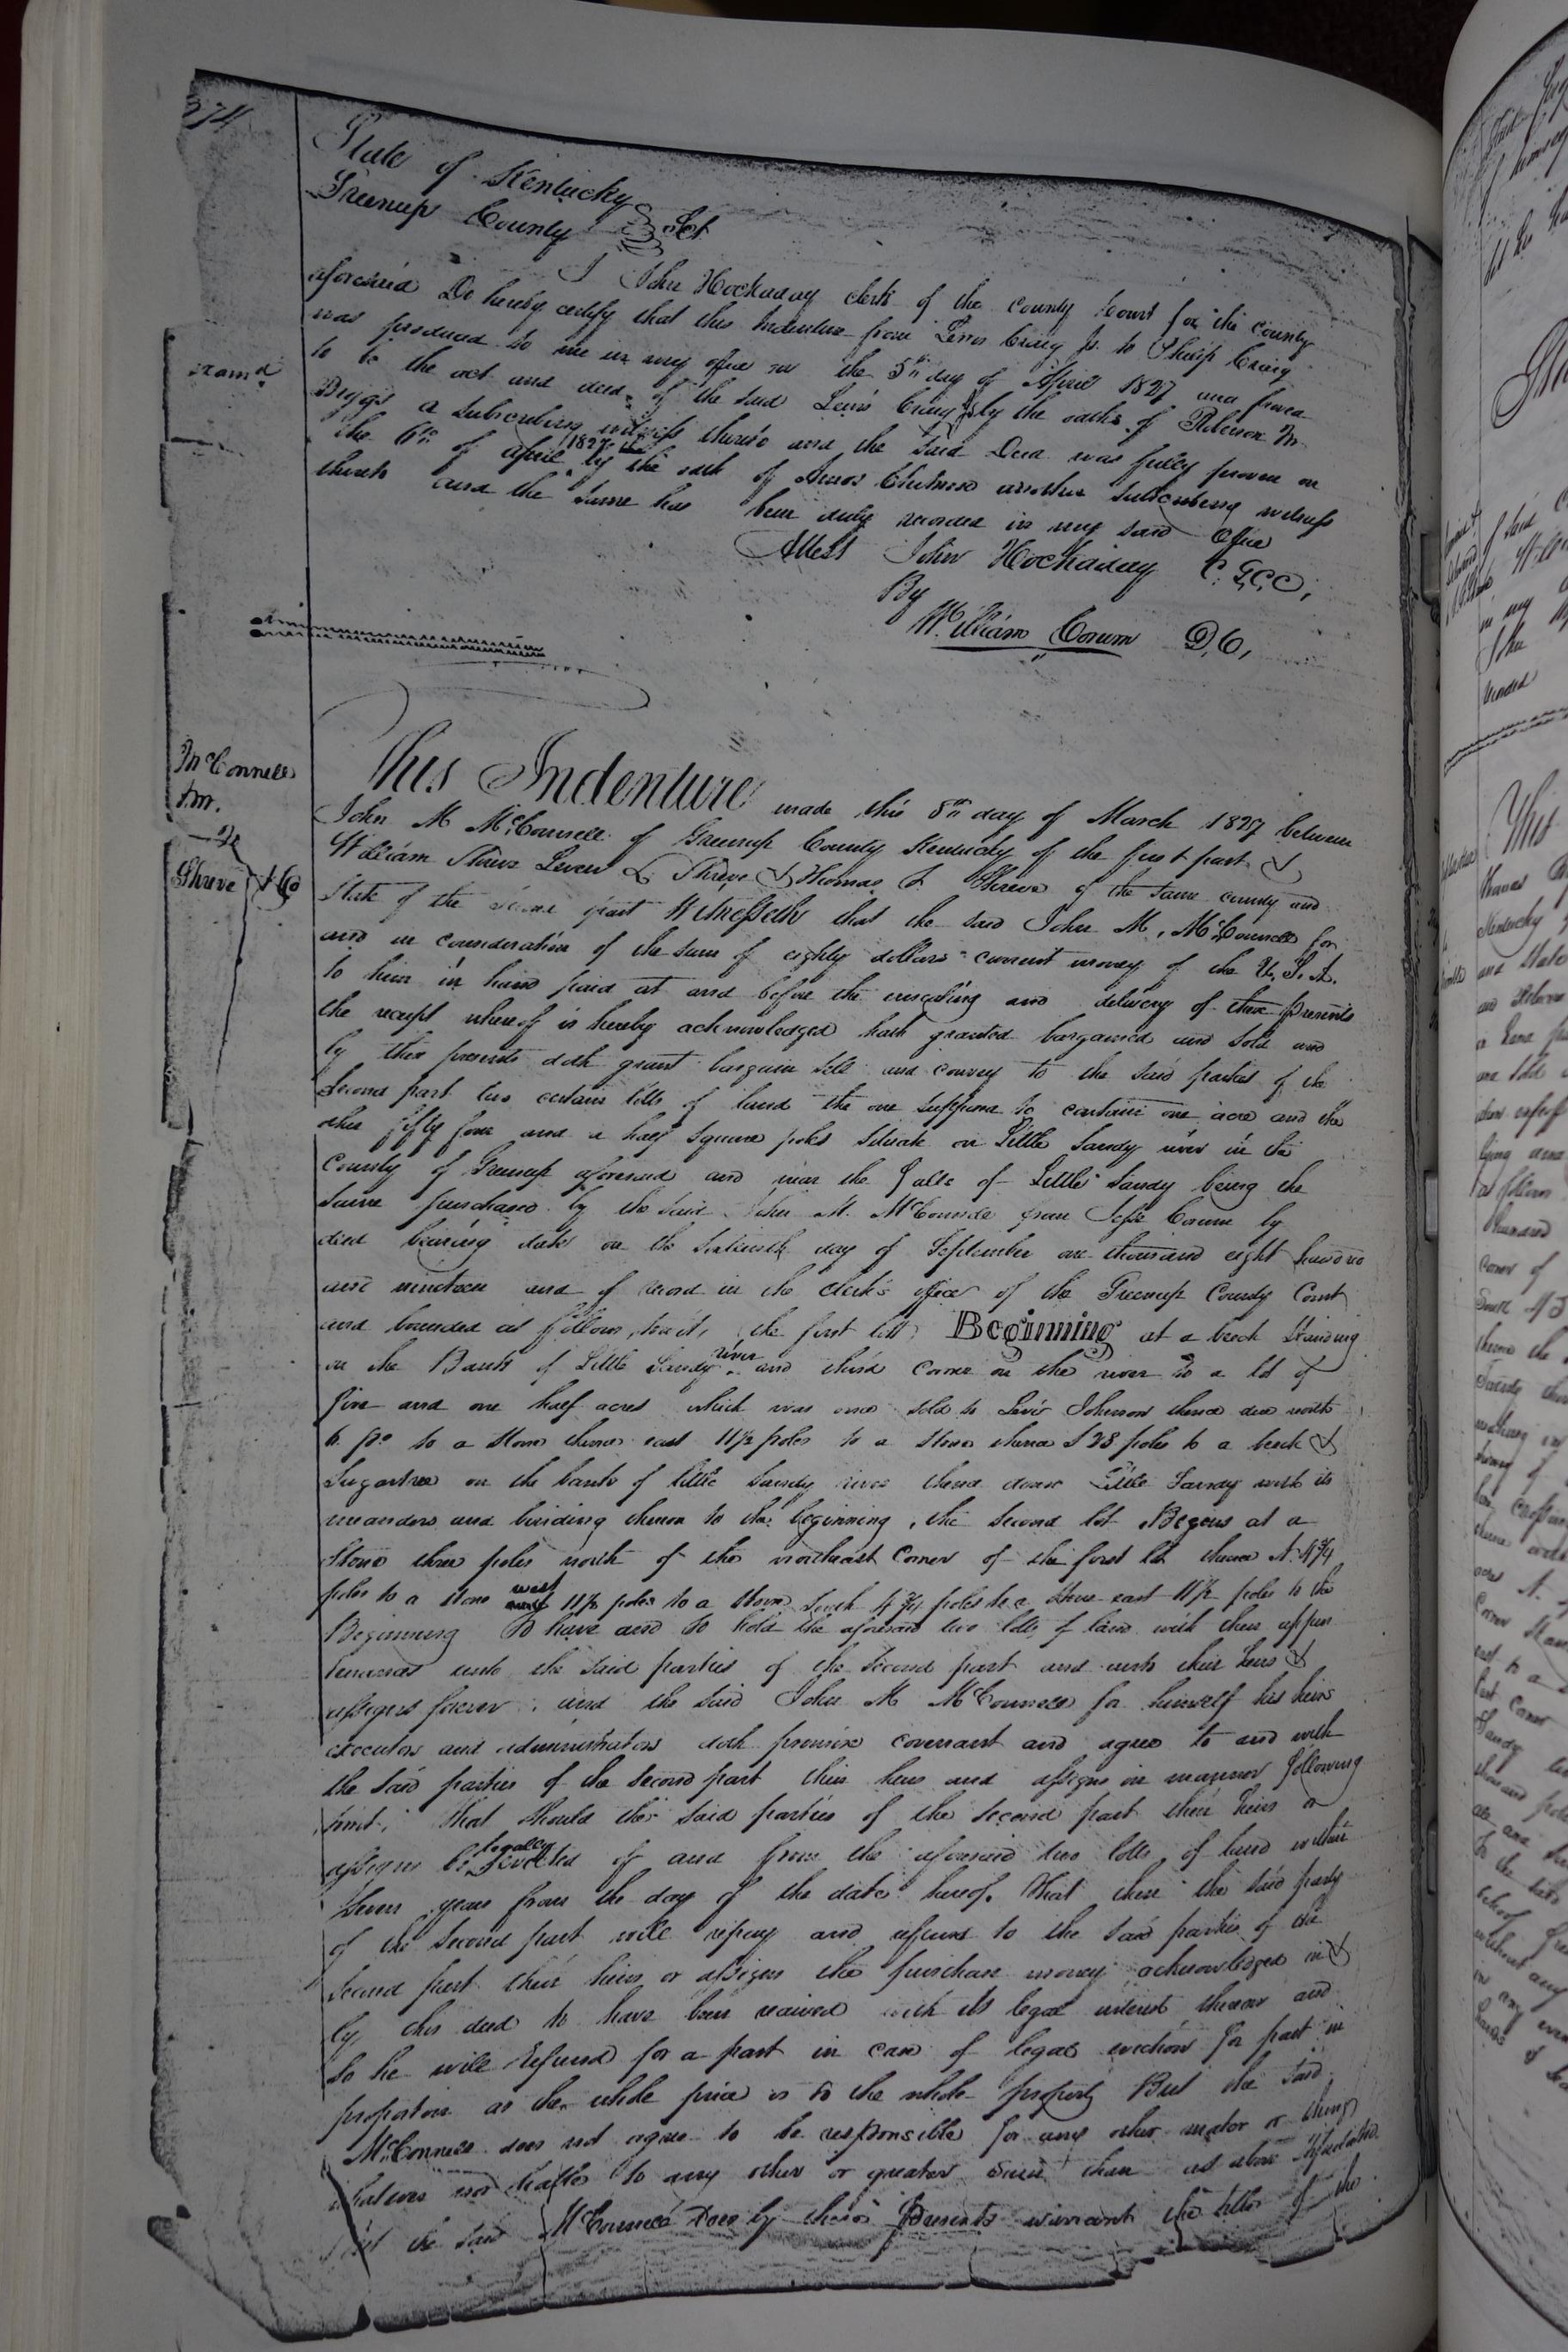 274
State of Kentucky
Greenup County Sct
I John Hockaday clerk of the county Court for the county
aforesaid Do hereby certify that this Indenture from Lewis Craig Jr. to Philip Craig
was produced to me in my office on the 5th day of April 1827 and proven
to be the act and deed of the said Lewis Craig Jr by the oaths of
Diggs a Subscribing witness thereto and the said Deed was fully proven on
the 6th of April 1827 by the oath of another Subscribing witness
thereto and the same has been duly recorded in my said Office
Attest John Hockaday C. G. C. C,
By
William Corum D. C,
Examd
McConnell
to
Shreve & Co
This Indenture made this 8th day of March 1827 between
John M McConnell of Greenup County Kentucky of the first part &
William Shreve Leven L Shreve & Thomas T Shreve of the same county and
State of the second part Witnesseth that the said John M. McConnell for
and in consideration of the sum of eighty dollars current money of the U. S. A.
to him in hand paid at and before the ensealing and delivery of these presents
the receipt whereof is hereby acknowledged hath granted bargained and sold and
by these presents doth grant bargain sell and convey to the said parties of the
Second part two certain lotts of land the one suppose to contain one acre and the
other fifty four and a half square poles situate on Little Sandy river in the
County of Greenup aforesaid and near the falls of Little Sandy being the
same purchased by the said John M. McConnell from Jesse Corum by
deed bearing date on the day of September one thousand eight hundred
and nineteen and of record in the clerk's office of the Greenup County Court
and bounded as follows, towit, the first lott Beginning at a beech standing
on the Bank of Little Sandy river and third corner on the river to a lot of
five and one half acres which was once sold to Johnson thence due north
6 po to a stone thence east 11½ poles to a stone thence S 28 poles to a beech &
Sugartree on the bank of little Sandy river thence down Little Sandy with its
meanders and binding thereon to the beginning, the second lot Begins at a
Stone three poles north of the northeast corner of the first lot thence N. 4¾
poles to a stone west 11½ poles to a stone South 4¾ poles to a stone east 11½ poles to the
Beginning To have and to hold the aforesaid two lotts of land with their appur
tenances unto the said parties of the second part and unto their heirs &
assigns forever. and the said John M McConnell for himself his heirs
executors and administrators doth promise covenant and agree to and with
the said parties of the second part their heirs and assigns in manner following
towit; that should the said parties of the second part their heirs or
assigns be legally evicted of and from the aforesaid two lotts of land within
seven years from the day of the date hereof. That then the said party
of the second part will repay and refund to the said parties of the
Second part their heirs or assigns the purchase money acknowledged in &
by this deed to have been received with its legal interest thereon and
so he will refund for a part in case of legal eviction for part in
proportion as the whole price is to the whole property But the said
McConnell does not agree to be responsible for any other matter or thing
whatever nor liable to any other or greater than as above
the said McConnell Does by these presents warrant the title of the